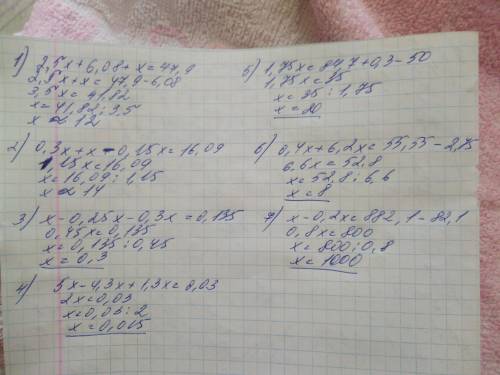 1) 2,5x+6,08+x=47,9
2,5x+x=47,9-6,08
3,5x=41,82
x=41,82:3,5
x≈12
2) 0,3x+x-0,15x=16,09
1,15x=16,09
x=16,09:1,15
x≈14
3) x-0,25x-0,3x=0,135
0,45x=0,135
x=0,135:0,45
x=0,3
4) 5x-4,3x+1,3x=0,03
2x=0,03
x=0,03:2
x=0,015
5) 1,75x=84,7+0,3-50
1,75x=35
x=35:1,75
x=20
6) 0,4x+6,2x=55,55-2,75
6,6x=52,8
x=52,8:6,6
x=8
7) x-0,2x=882,1-82,1
0,8x=800
x=800:0,8
x=1000